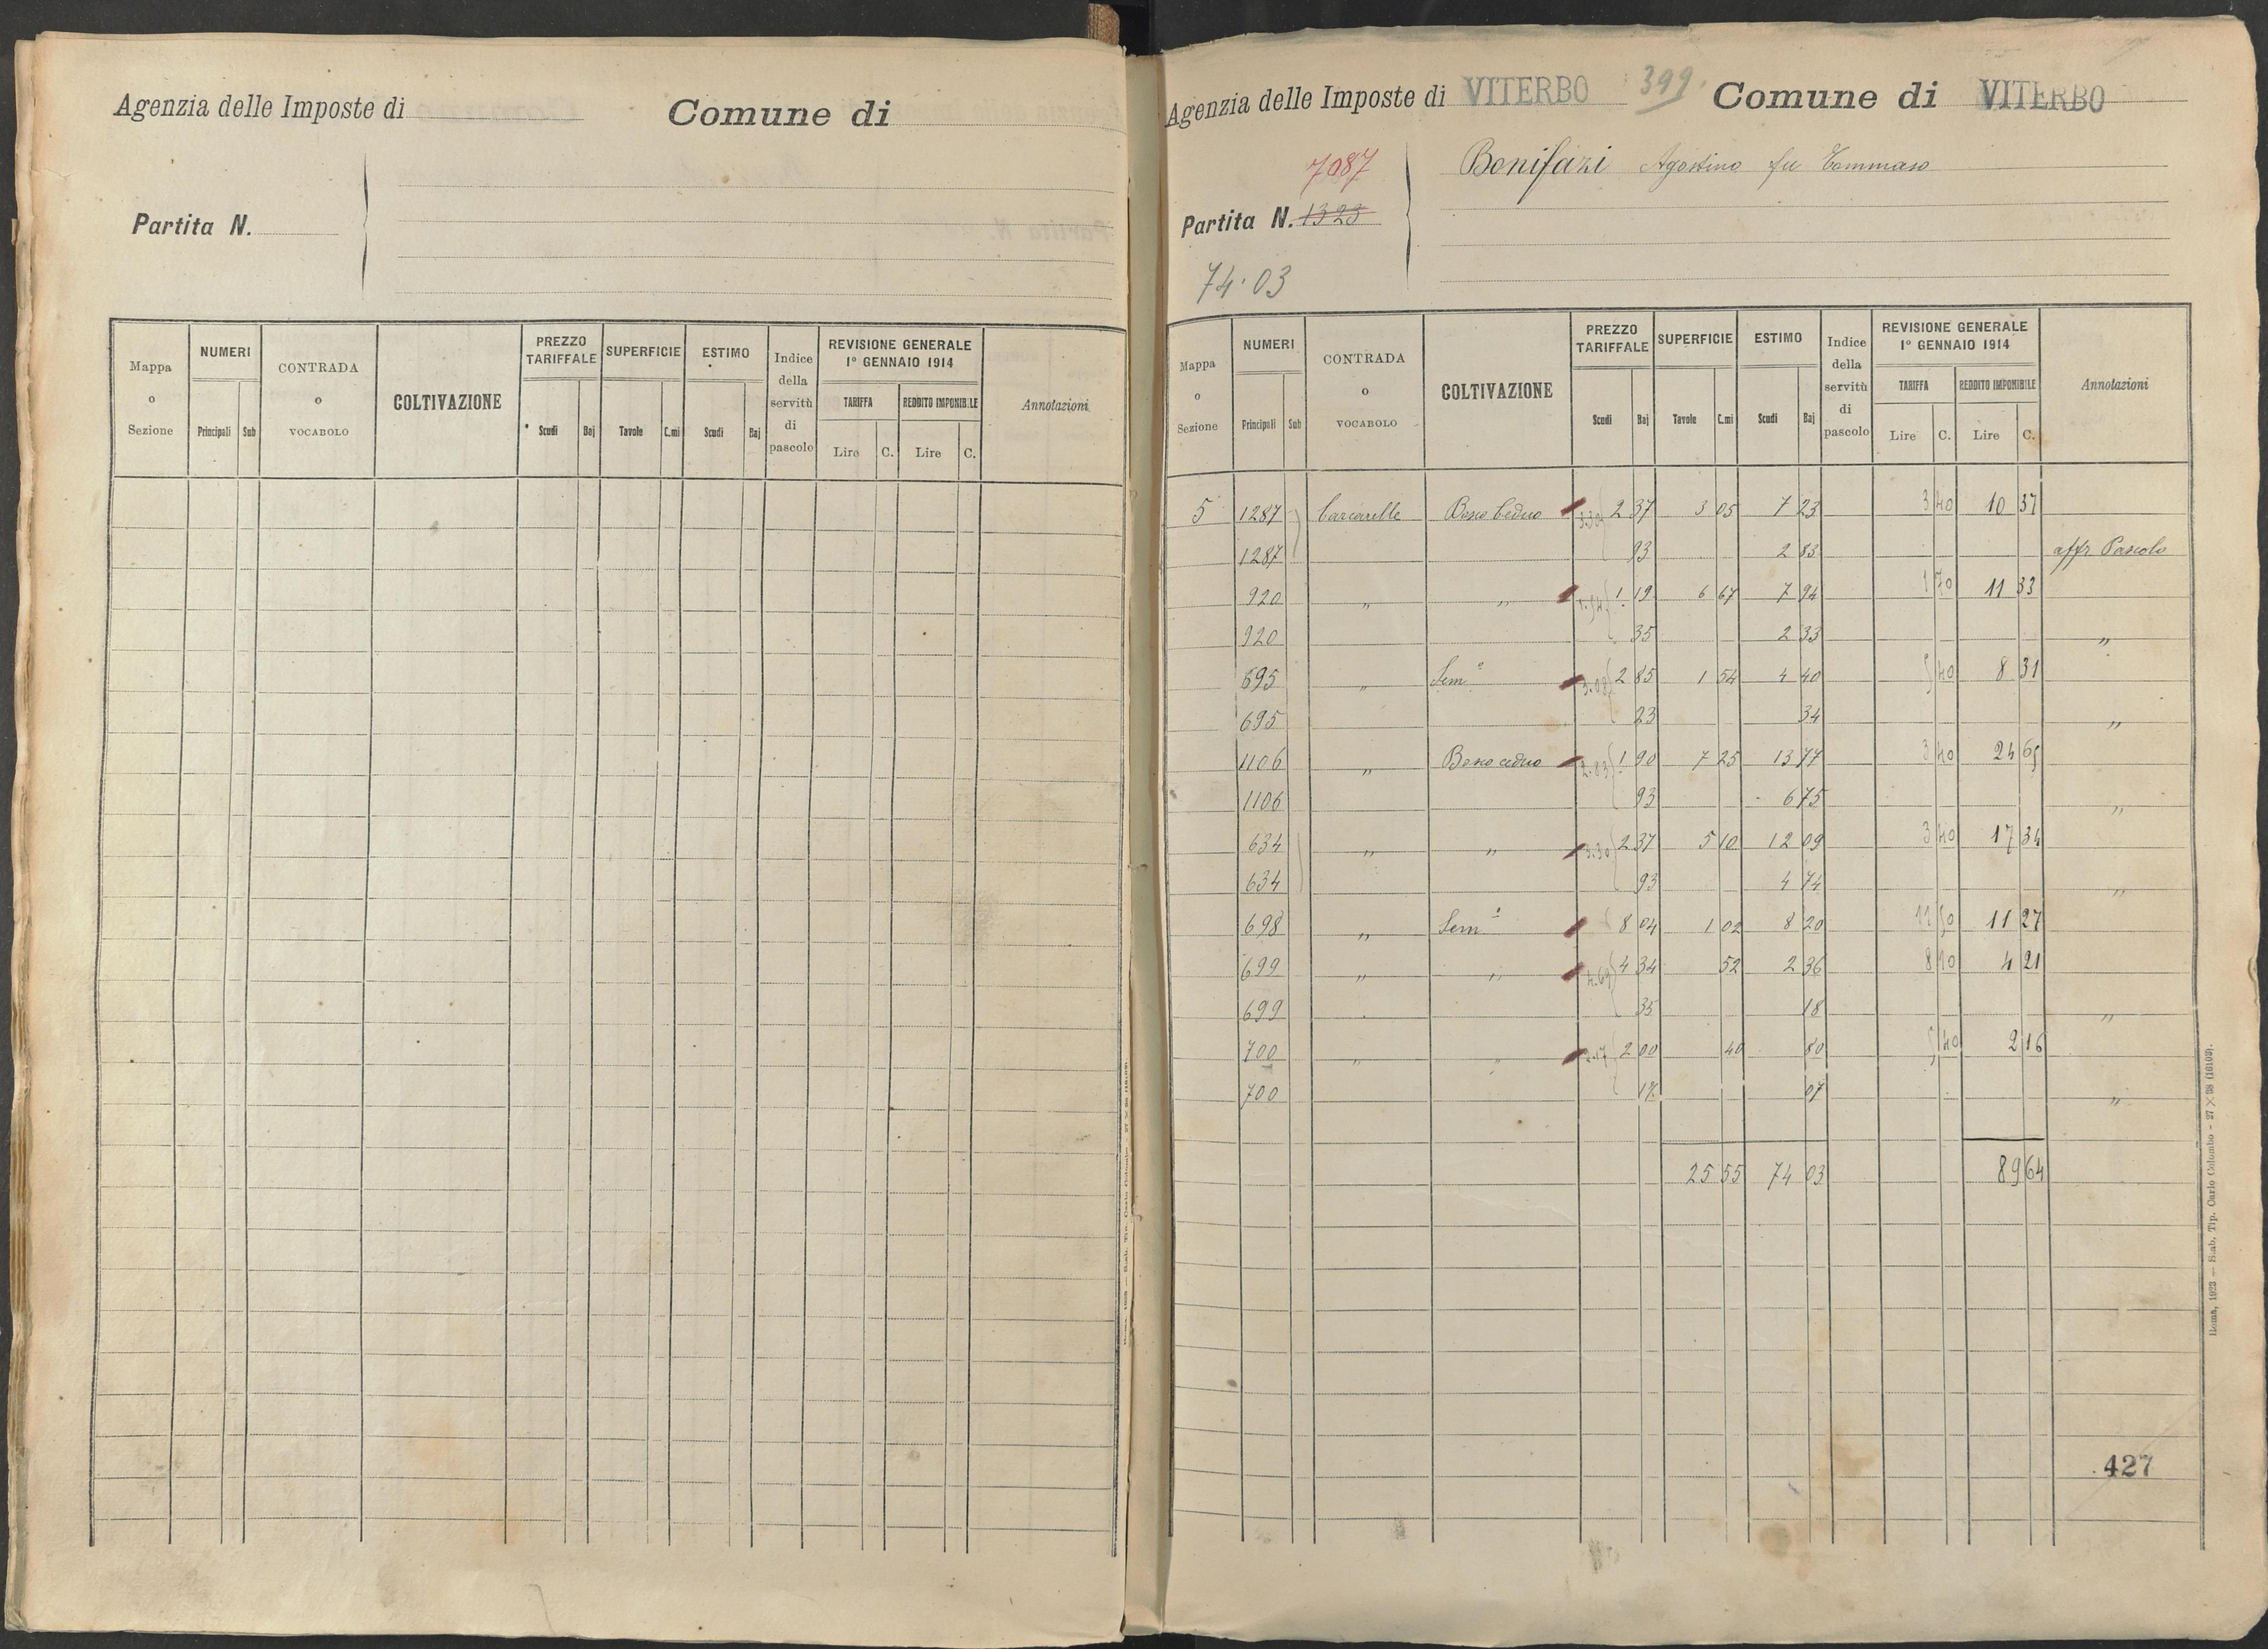 Agenzia delle Imposte di
Comune di
Partita N.
Mappa o Sezione | NUMERI Principali Sub | CONTRADA o VOCABOLO | COLTIVAZIONE | PREZZO TARIFFALE Scudi Baj | SUPERFICIE Tavole C.mi | ESTIMO Scudi Baj | Indice della servitù di pascolo | REVISIONE GENERALE 1° GENNAIO 1914 TARIFFA Lire C. REDDITO IMPONIBILE Lire C. | Annotazioni
Agenzia delle Imposte di VITERBO 399. Comune di VITERBO
7087 Bonifazi Agostino fu Tommaso
Partita N. 1323
74.03
Mappa o Sezione | NUMERI Principali Sub | CONTRADA o VOCABOLO | COLTIVAZIONE | PREZZO TARIFFALE Scudi Baj | SUPERFICIE Tavole C.mi | ESTIMO Scudi Baj | Indice della servitù di pascolo | REVISIONE GENERALE 1° GENNAIO 1914 TARIFFA Lire C. REDDITO IMPONIBILE Lire C. | Annotazioni
5 1287 Carcarelle Bosco Ceduo 3.30 2 37 3 05 7 23 3 40 10 37
1287 93 2 83 affr Pascolo
920 " " 1.54 1 19 6 67 7 94 1 70 11 33
920 35 2 33 "
695 " Sem° 3.08 2 85 1 54 4 40 5 40 8 31
695 23 34 "
1106 " Bosco ceduo 2.83 1 90 7 25 13 77 3 40 24 65
1106 93 6 75 "
634 " " 3.30 2 37 5 10 12 09 3 40 17 34
634 93 4 74 "
698 " Sem° 8 04 1 02 8 20 11 27
699 " " 4.69 4 34 52 2 36 8 10 4 21
699 35 18 "
700 " " 2.17 2 00 40 80 5 40 2 16
700 17 07 "
25 55 74 03 89 64
427
Roma, 1923 — Stab. Tip. Carlo Colombo - 27 × 38